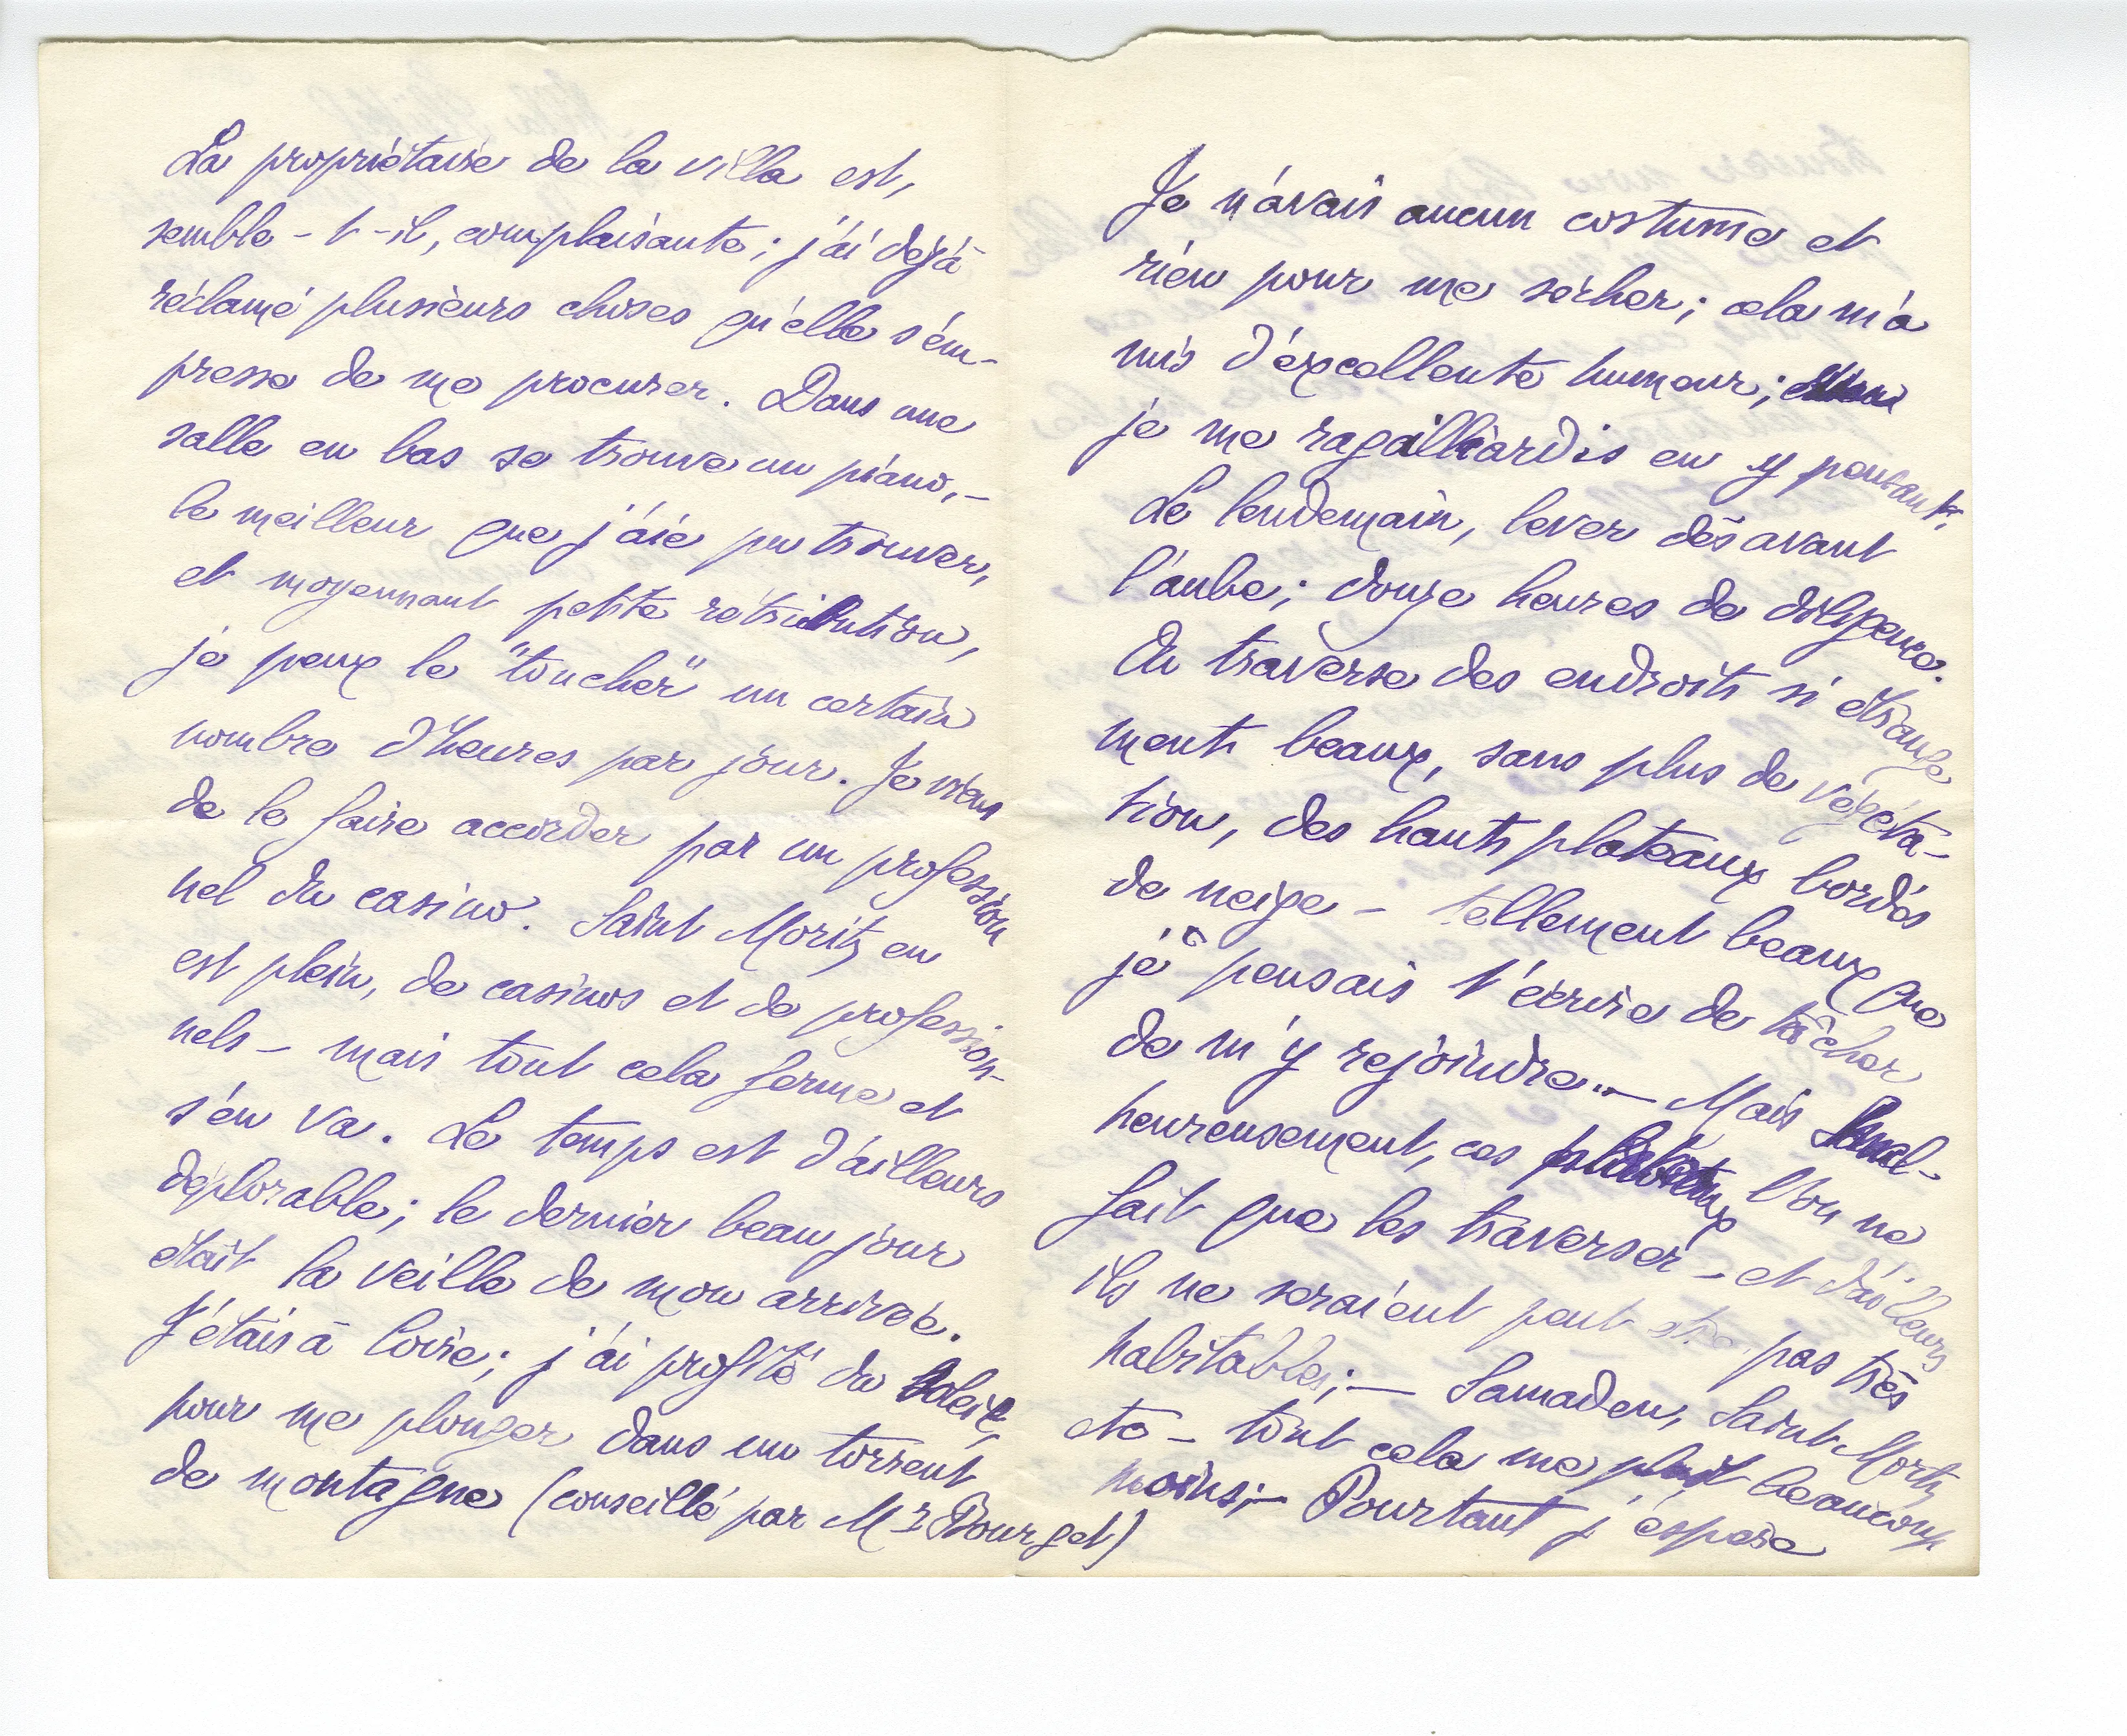 La propriétaire de la villa est,
semble-t-il, complaisante; j'ai déjà
réclamé plusieurs choses qu'elle s'em-
presse de me procurer. Dans une
salle en bas se trouve un piano, –
le meilleur que j'aie pu trouver,
et moyennant petite rétribution,
je peux le "toucher" un certain
nombre d'heures par jour. Je viens
de le faire accorder par un profession
nel du casino. Saint Moritz en
est plein, de casinos et de profession-
nels – mais tout cela ferme et
s'en va. Le temps est d'ailleurs
déplorable; le dernier beau jour
était la veille de mon arrivée.
J'étais à Coire; j'ai profité du soleil,
pour me plonger dans un torrent
de montagne (conseillé par Mr Bourget)
Je n'avais aucun costume et
rien pour me sécher; cela m'a
mis d'excellente humeur;
je me ragaillardis en y pensant.
Le lendemain, lever dès avant
l'aube; douze heures de diligence.
On traverse des endroits si étrange
ments beaux, sans plus de végéta-
tion, des hauts plateaux bordés
de neige – tellement beaux que
je pensais t'écrire de tâcher
de m'y rejoindre... – Mais mal-
heureusement, ces plateaux l'on ne
fait que les traverser – et d'ailleurs
ils ne seraient peut etre pas très
habitables; – Samaden, Saint Moritz
etc – tout cela me plaît beaucoup
moins; – Pourtant j'espère